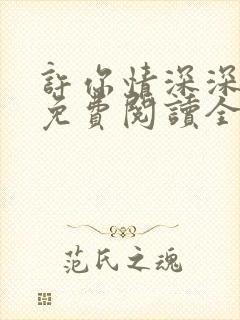 許你情深深
免費閱讀全
范氏之魂